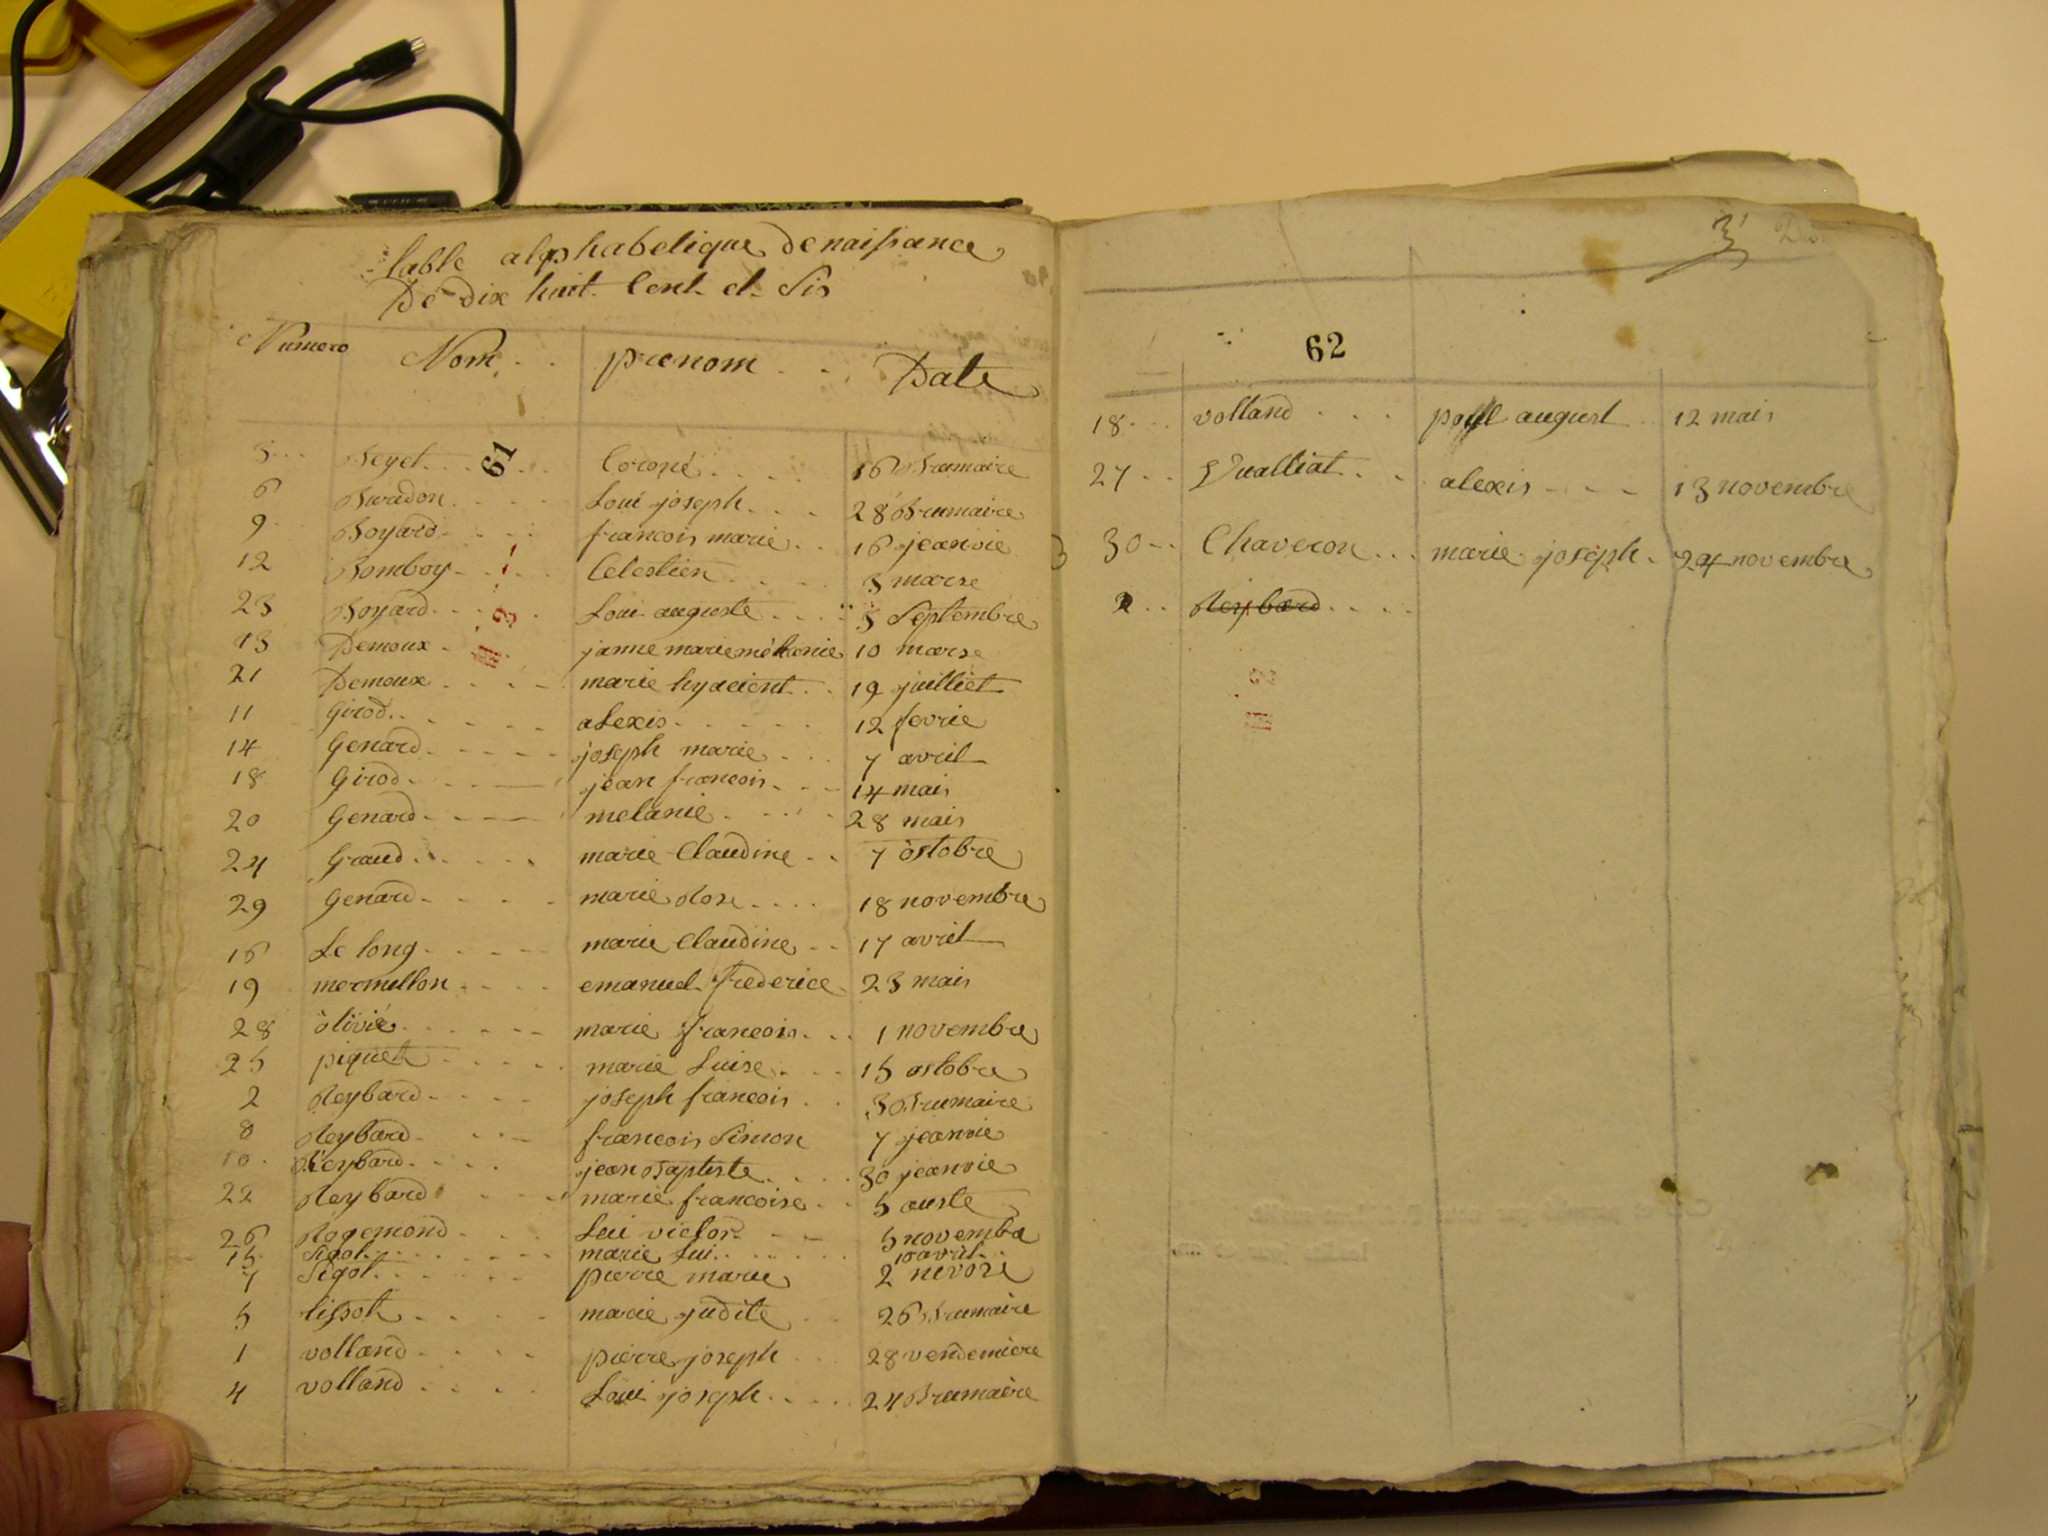 table alphabetique denaissance
De dix huit Cent et Sis
Numero Nom prenom Date
61
3 Beyet 16 Brumaire
6 Buradon Loui joseph 28 Brumaire
9 Boyard francois marie 16 jeanvie
12 Bomboy Celestien 3 marse
23 Boyard Loui auguste 3 Septembre
13 Demoux janne marie mélanie 10 marse
21 Demoux marie hyacient 19 juilliet
11 Girod alexis 12 fevrie
14 Genard joseph marie 7 avril
18 Girod jean francois 14 mais
20 Genard melanie 28 mais
24 Graud marie Claudine 7 òstobre
29 Genard marie Rose 18 novembre
16 Le long marie Claudine 17 avril
19 mermillon emanuel frederice 23 mais
28 òlivié marie francois 1 novembre
25 piquet marie Luise 15 ostobre
2 Reybard joseph francois 3 Brumaire
8 Reybard francois Simon 7 jeanvie
10 Reybard jean Baptiste 30 jeanvie
22 Reybard marie francoise 5 auste
26 Rogemond Lui victor 5 novembre
15 Sigot marie Lui 10 avril
7 Sigot pierre marie 2 nivose
5 tissot marie judite 26 Brumaire
1 volland pierre joseph 28 vendemiere
4 volland Loui joseph 24 Brumaire
62
18 volland paul august 12 mais
27 Vualliat alexis 13 novembre
30 Chaveron marie joseph 24 novembre
2 Reybard